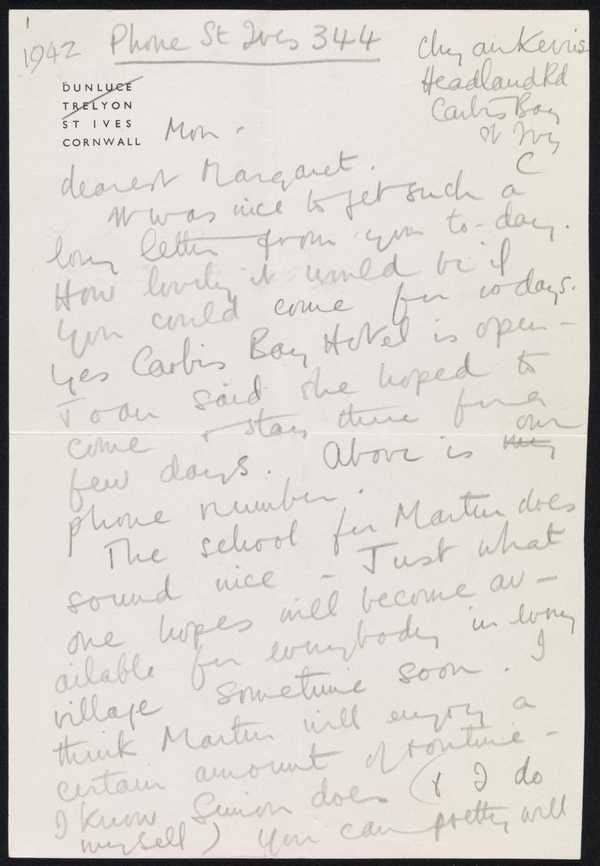 1
1942
Phone St Ives 344
Chy an Kerris
Headland Rd
Carbis Bay
St Ives
C
DUNLUCE
TRELYON
ST IVES
CORNWALL
Mon.
dearest Margaret.
It was nice to get such a
long letter from you to-day.
How lovely it would be if
you could come for 10 days.
Yes Carbis Bay Hotel is open –
Joan said she hoped to
come & stay there for a
few days. Above is my our
phone number.
The school for Martin does
sound nice – Just what
one hopes will become av-
ailable for everybody in every
village sometime soon. I
think Martin will enjoy a
certain amount of routine –
I know Simon does (& I do
myself) You can pretty well